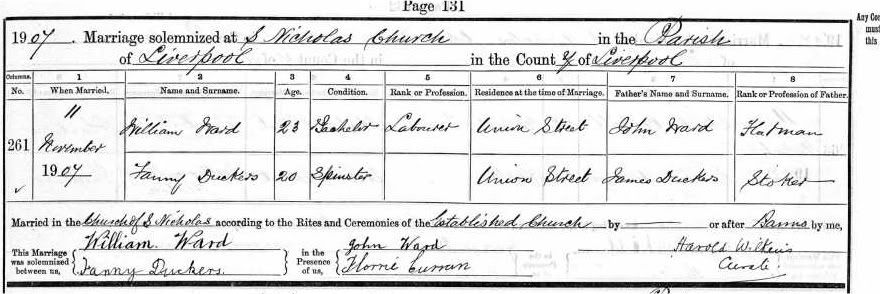 Page 131
1907. Marriage solemnized at S Nicholas Church in the Parish
of Liverpool in the County of Liverpool
Any Co
must
this
Columns. 1 2 3 4 5 6 7 8
No. When Married. Name and Surname. Age. Condition. Rank or Profession. Residence at the time of Marriage. Father's Name and Surname. Rank or Profession of Father.
261 11 November 1907 William Ward 23 Bachelor Labourer Union Street John Ward Flatman
Fanny Duckers 20 Spinster Union Street James Duckers Stoker
Married in the Church of S Nicholas according to the Rites and Ceremonies of the Established Church by or after Banns by me,
This Marriage was solemnized between us, William Ward Fanny Duckers. in the Presence of us, John Ward Florrie Curran Harold Wilkins Curate